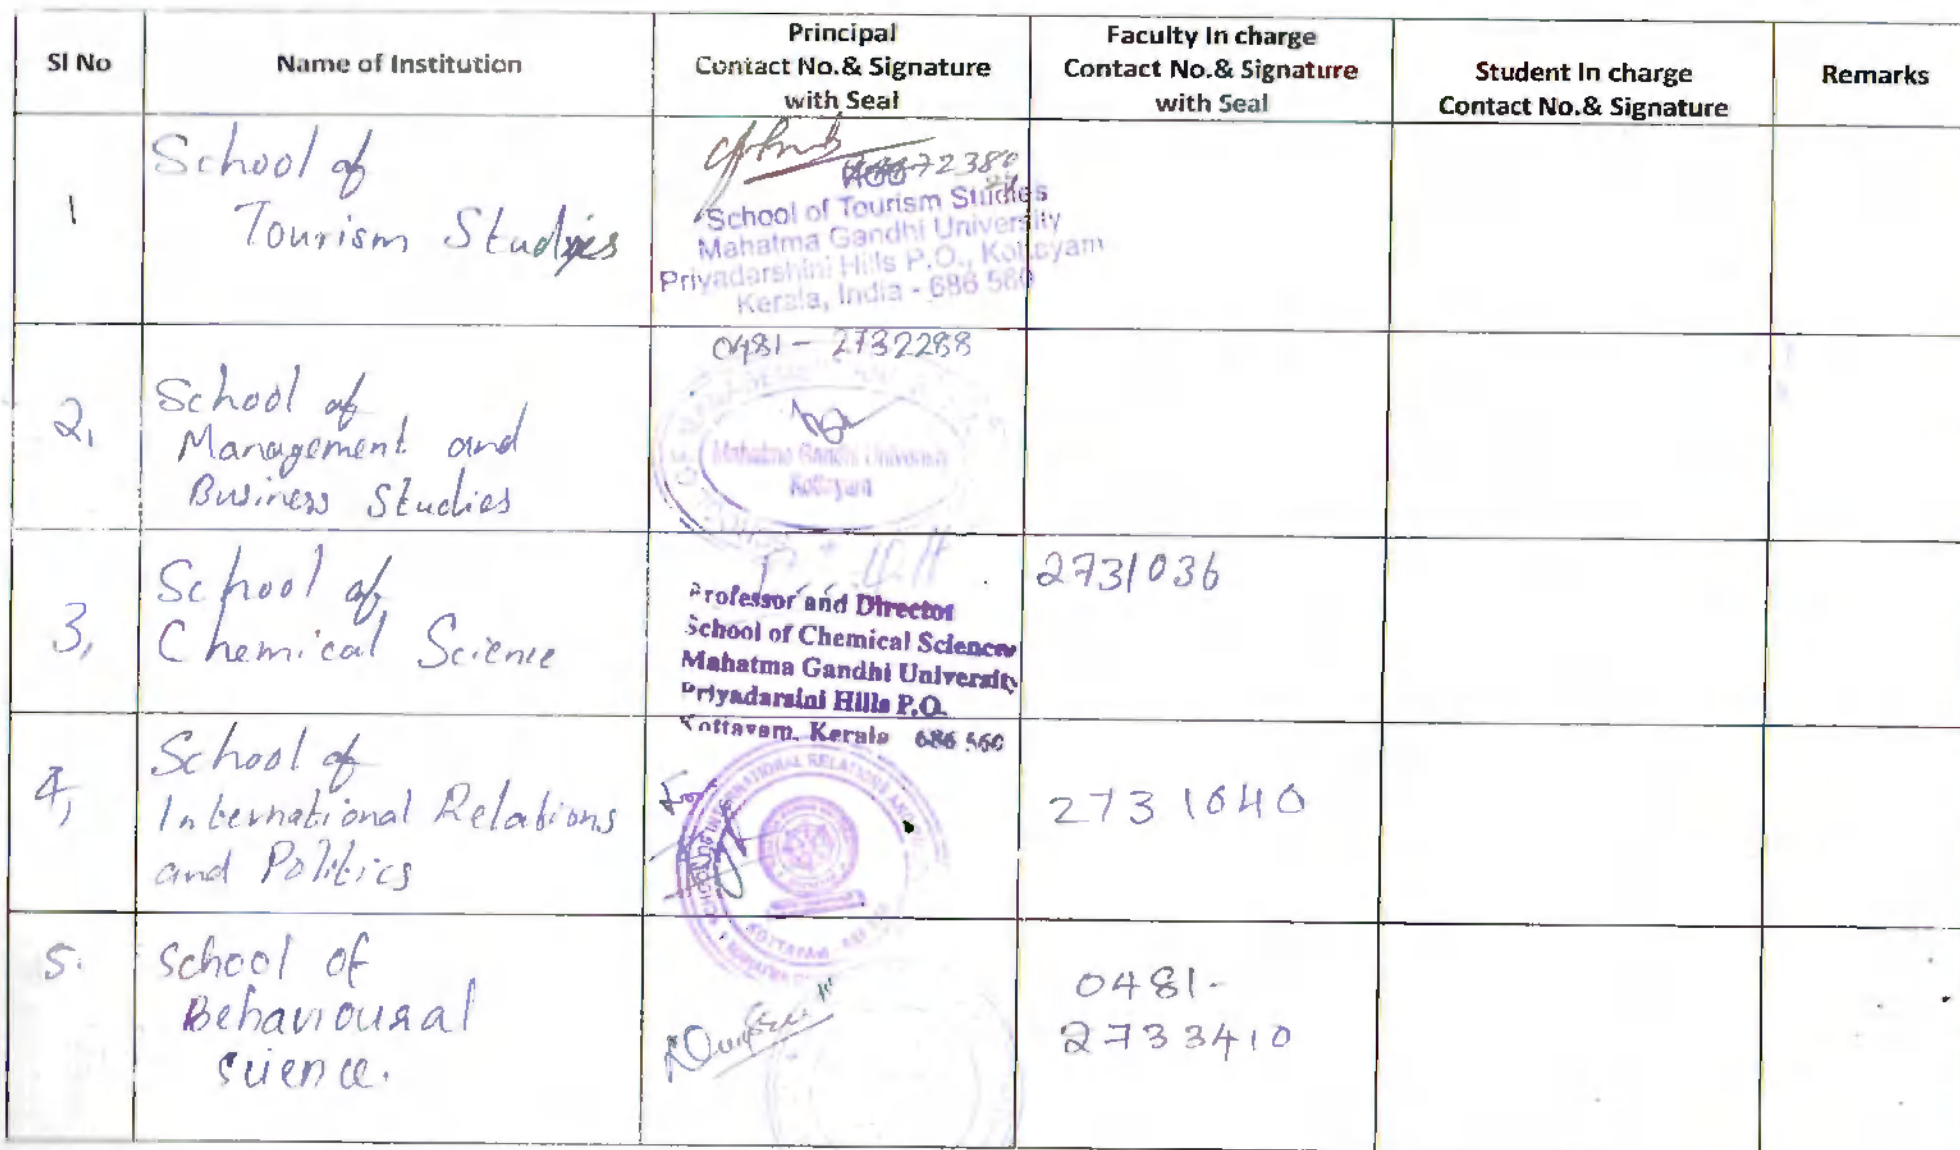 SI No
Name of Institution
Principal
Contact No.& Signature
with Seal
Faculty In charge
Contact No.& Signature
with Seal
Student In charge
Contact No.& Signature
Remarks
1
School of
Tourism Studies
HOD
School of Tourism Studies
Mahatma Gandhi University
Priyadarshini Hills P.O., Kottayam
Kerala, India - 686 560
2,
School of
Management and
Business Studies
0481 - 2732288
Mahatma Gandhi University
Kottayam
3,
School of
Chemical Science
Professor and Director
School of Chemical Sciences
Mahatma Gandhi University
Priyadarsini Hills P.O.
Kottayam, Kerala 686 560
2731036
4,
School of
International Relations
and Politics
2731040
5.
School of
Behavioural
Science.
0481-
2733410